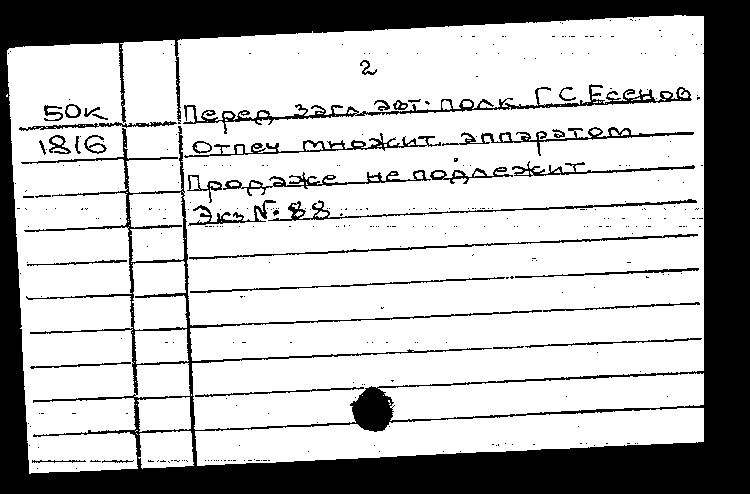 2
50к Перед загл. авт: полк. Г.С. Есенов.
1816 Отпеч. множит. аппаратом.
Продаже не подлежит.
Экз. №: 88.